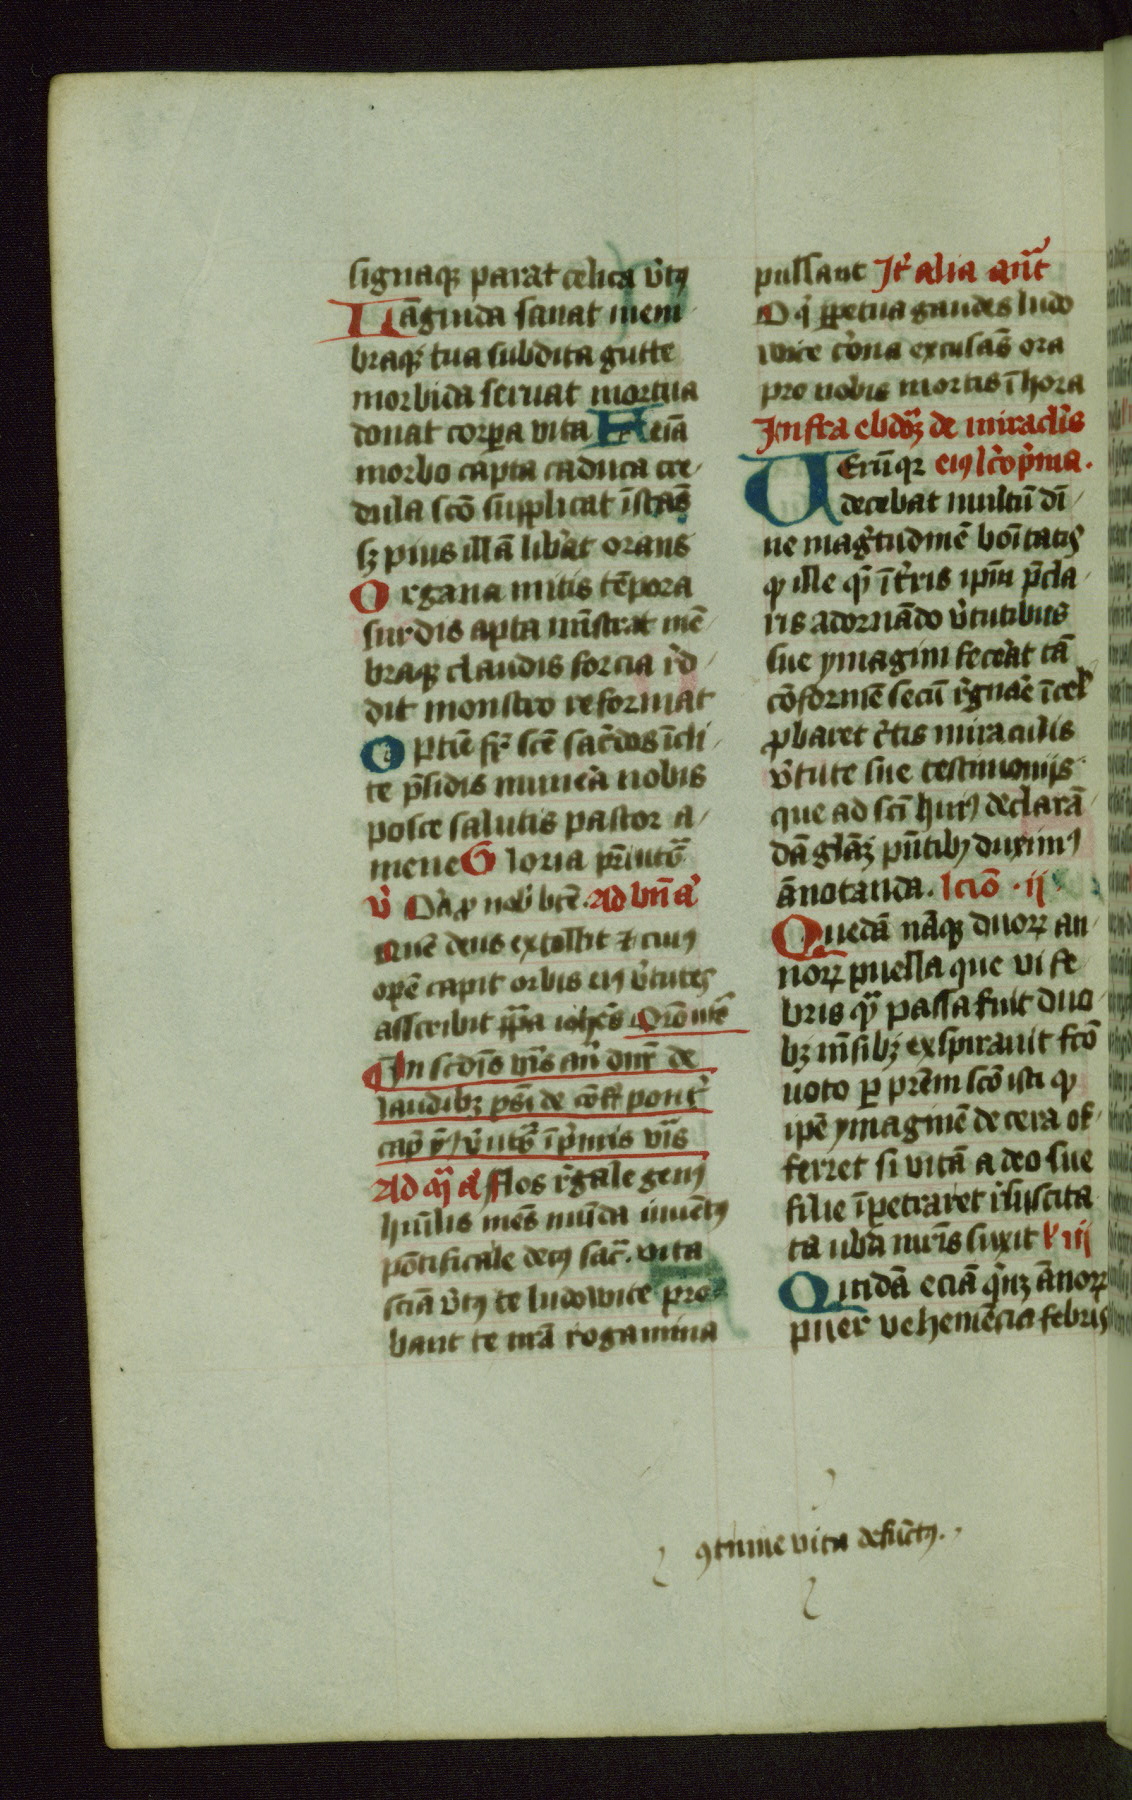 signaq parat celica v̉tꝯ
Lāguida sanat mem
braq tua subdita gutte
morbida seruat mortua
donat corꝑa vita Fleiā
morbo capta caduca cre-
dula scō supplicat īstās
sꝫ pius illā lib̉at orans
Organa mitis tēpora
surdis apta mīstrat mē-
braq claudis forcia rd̉-
dit monstro reformat
Optīe scē sac̉dos īcli-
te p̄sidis munera nobis
posce salutis pastor a-
mene Gloria
v̉ Ad bn̄ ả
Quē deus extollit ⁊ cuius
opē capit orbis eiꝯ v̉tutes
asscribit
In scd̄is vn̄is de
laudibꝫ de cōf pont̉
ī p̉mis vn̄is
Ad flos r̉gale genꝯ
humilis mēs mūda iuuētꝯ
pōtificale decꝯ sac̄. vita
sciā v̉tꝯ te ludowice pro-
bant te nr̄a rogamina
pulsant It̉ alia ant̄
O q̉ ꝑpetua gaudes ludo
wice c̉ona excusās ora
pro nobis mortis ī hora
Infra ebdꝫ de miraclis
Uerūqꝫ eiꝯ lc̉o p̉ma.
decebat multū di-
ne magītudinē boītatis
ꝙ ille q̉ īt̉ris ip̄m p̄cla-
ris adornādo v̉tutibus
sue ymagini fecerat tā
cōformē secū r̉gnar̄e ī cel̉
ꝓbaret c̉tis miraculis
v̉tute sue testimoniis
que ad scī huiꝯ declarā-
dā gl̄aꝫ pn̄tibꝫ duximꝯ
ānotanda. lcīo .ij
Quedā nāq duorꝝ an-
norꝝ puella que vi fe
bris q̄ passa fuit duo
bꝫ mēsibꝫ exspirauit fc̄o
uoto ꝑ prēm scō isti ꝙ
ipē ymaginē de cera of-
ferret si vitā a deo sue
filie īpetraret r̉suscita
ta ubā nut̉s suxit l̉ iij
Quidā eciā q̉nꝫ ānorꝝ
puer vehemēcia febris
ꝯtinue vita defūctꝯ.